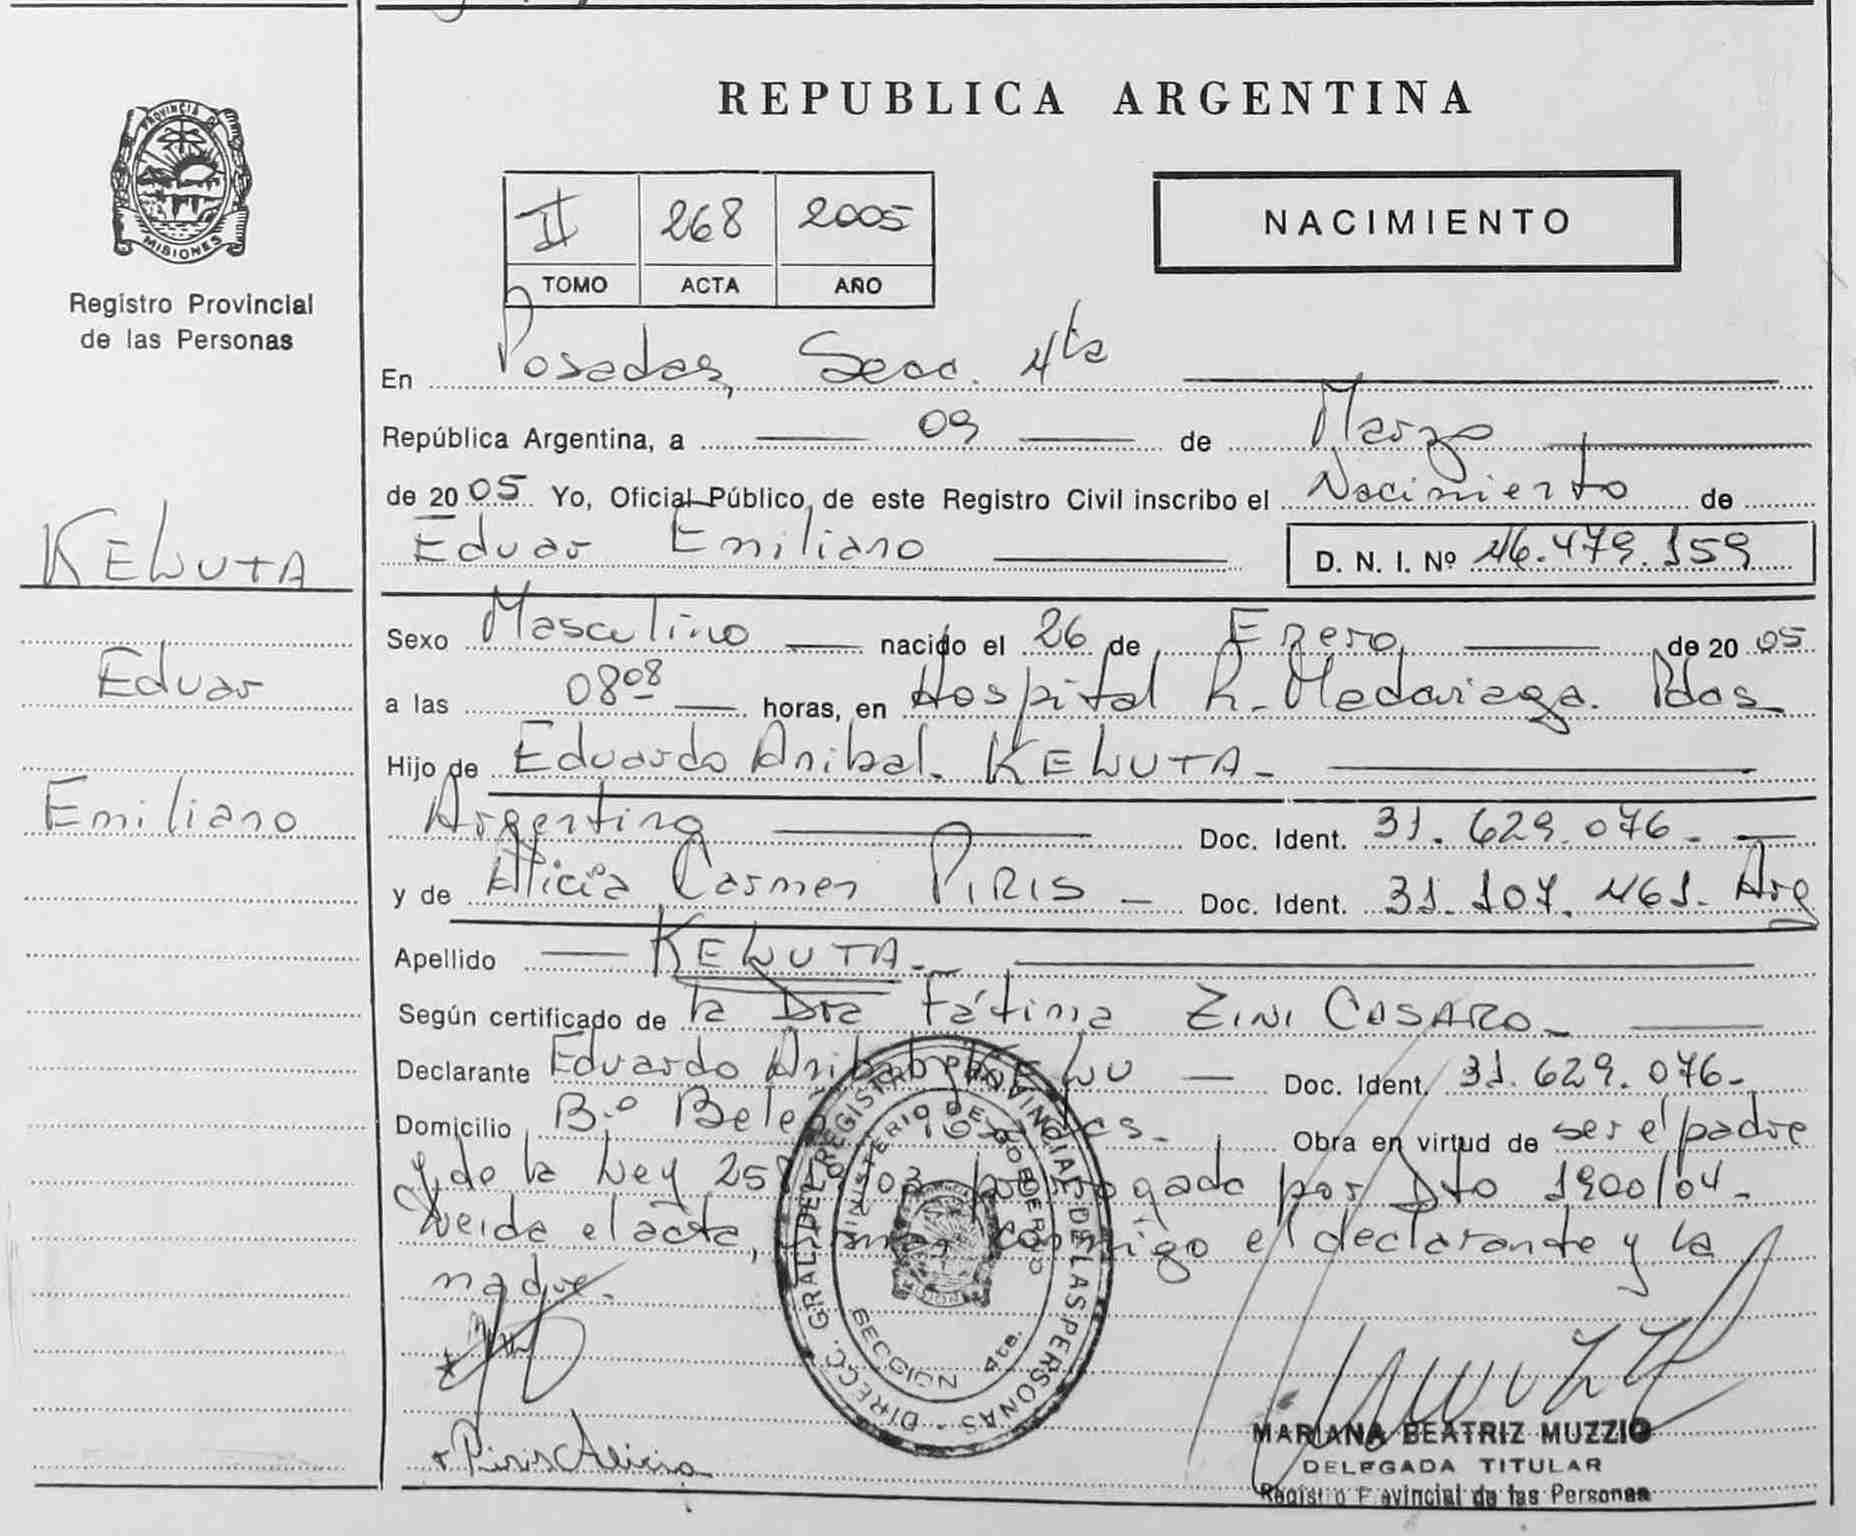 PROVINCIA DE
MISIONES
Registro Provincial
de las Personas
KELUTA
Eduar
Emiliano
REPUBLICA ARGENTINA
II 268 2005
TOMO ACTA AÑO
NACIMIENTO
En Posadas, Secc. 4ta
República Argentina, a 09 de Marzo
de 2005 Yo, Oficial Público, de este Registro Civil inscribo el Nacimiento de
Eduar Emiliano D. N. I. Nº 46.479.159
Sexo Masculino nacido el 26 de Enero de 2005
a las 08 08 horas, en Hospital R. Madariaga. Pdas
Hijo de Eduardo Anibal KELUTA
Argentino Doc. Ident. 31.629.076
y de Alicia Carmen PIRIS Doc. Ident. 31.107.461. Arg
Apellido KELUTA
Según certificado de la Dra Fátima ZINI CASARO
Declarante Eduardo Anibal Doc. Ident. 31.629.076
Domicilio B.º Obra en virtud de ser el padre
y de la Ley por Dto 1900/04
Leida el acta, conmigo el declarante y la
madre.
DIRECC. GRAL. DEL REGISTRO PROVINCIAL DE LAS PERSONAS
MINISTERIO DE GOBIERNO
SECCION 4ta.
Piris Alicia
MARIANA BEATRIZ MUZZIO
DELEGADA TITULAR
Registro Provincial de las Personas